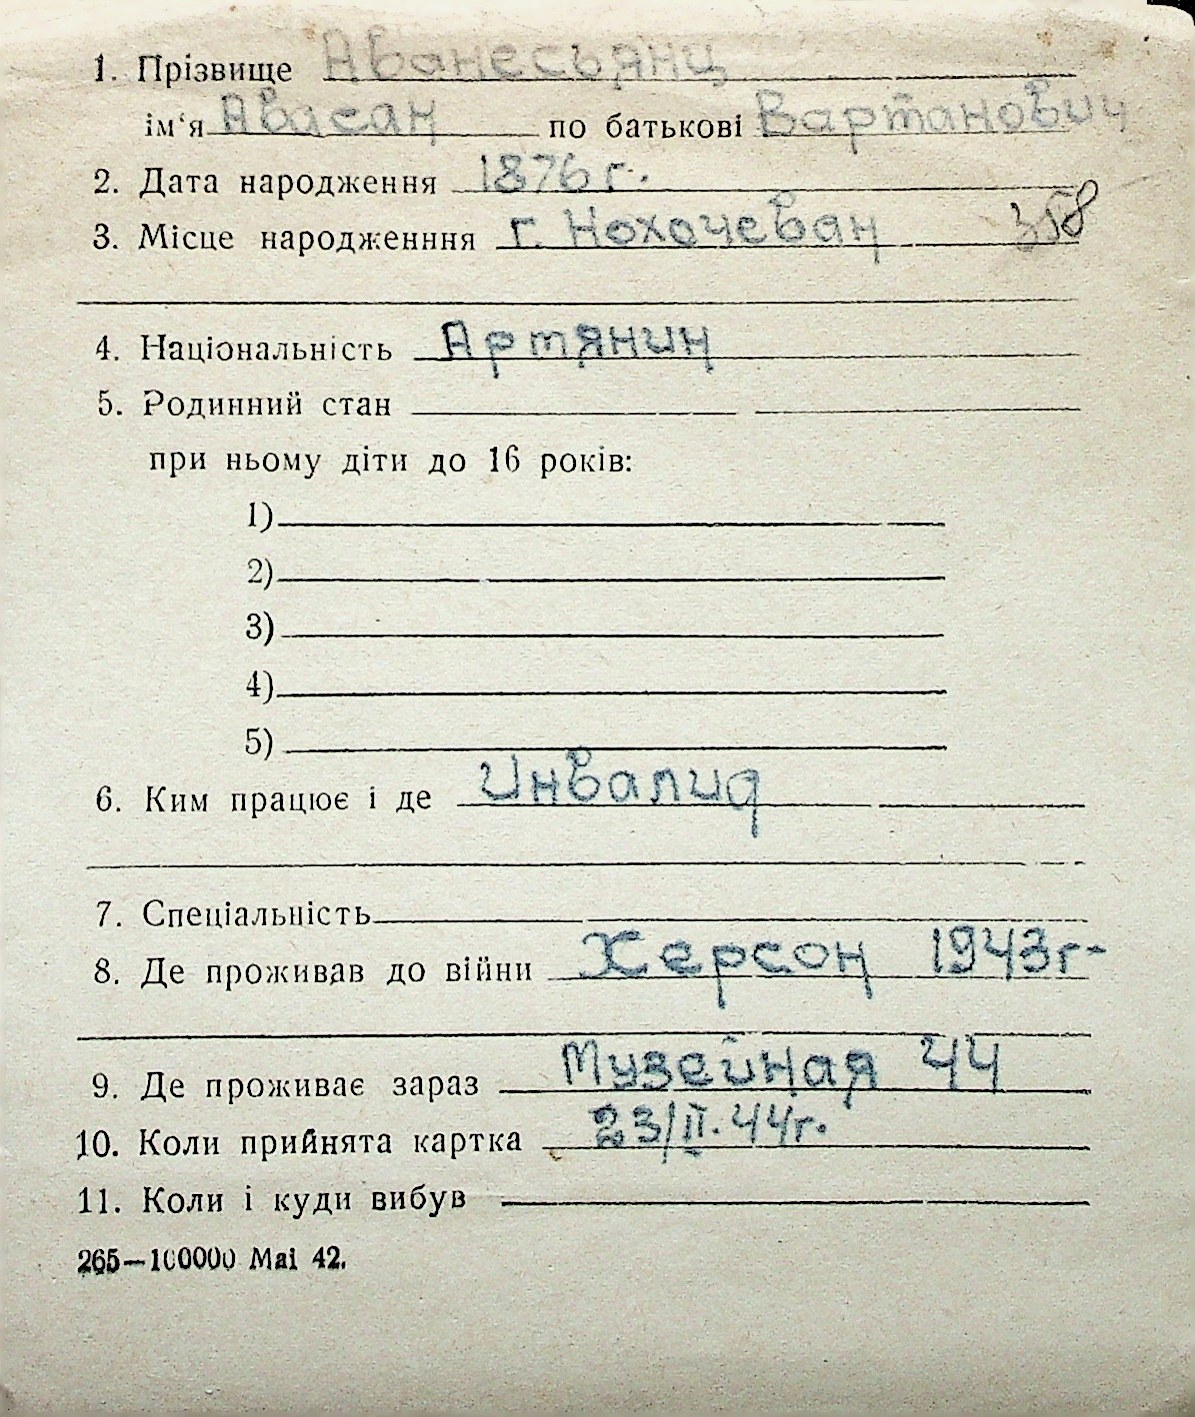 1. Прізвище Аванесьянц
ім‘я Авасан по батькові Вартанович
2. Дата народження 1876 г.
3. Місце народженння г. Нохочеван 358
4. Національність Артянин
5. Родинний стан
при ньому діти до 16 років:
1)
2)
3)
4)
5)
6. Ким працює і де Инвалид
7. Спеціальність
8. Де проживав до війни Херсон 1943г-
9. Де проживає зараз Музейная 44
10. Коли прийнята картка 23/II.44г.
11. Коли і куди вибув
265—100000 Mai 42.